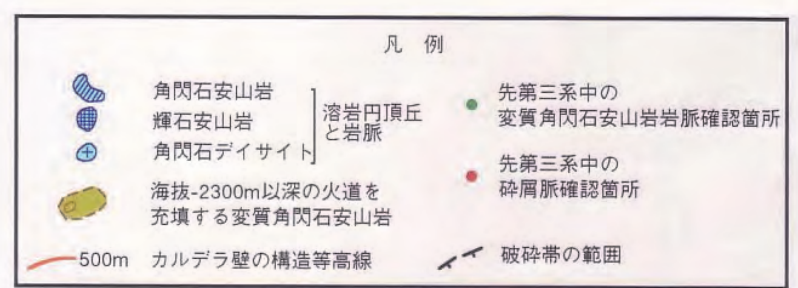 凡 例
角閃石安山岩
輝石安山岩
角閃石デイサイト
溶岩円頂丘
と岩脈
海抜-2300m以深の火道を
充填する変質角閃石安山岩
500m カルデラ壁の構造等高線
先第三系中の
変質角閃石安山岩岩脈確認箇所
先第三系中の
砕屑脈確認箇所
破砕帯の範囲